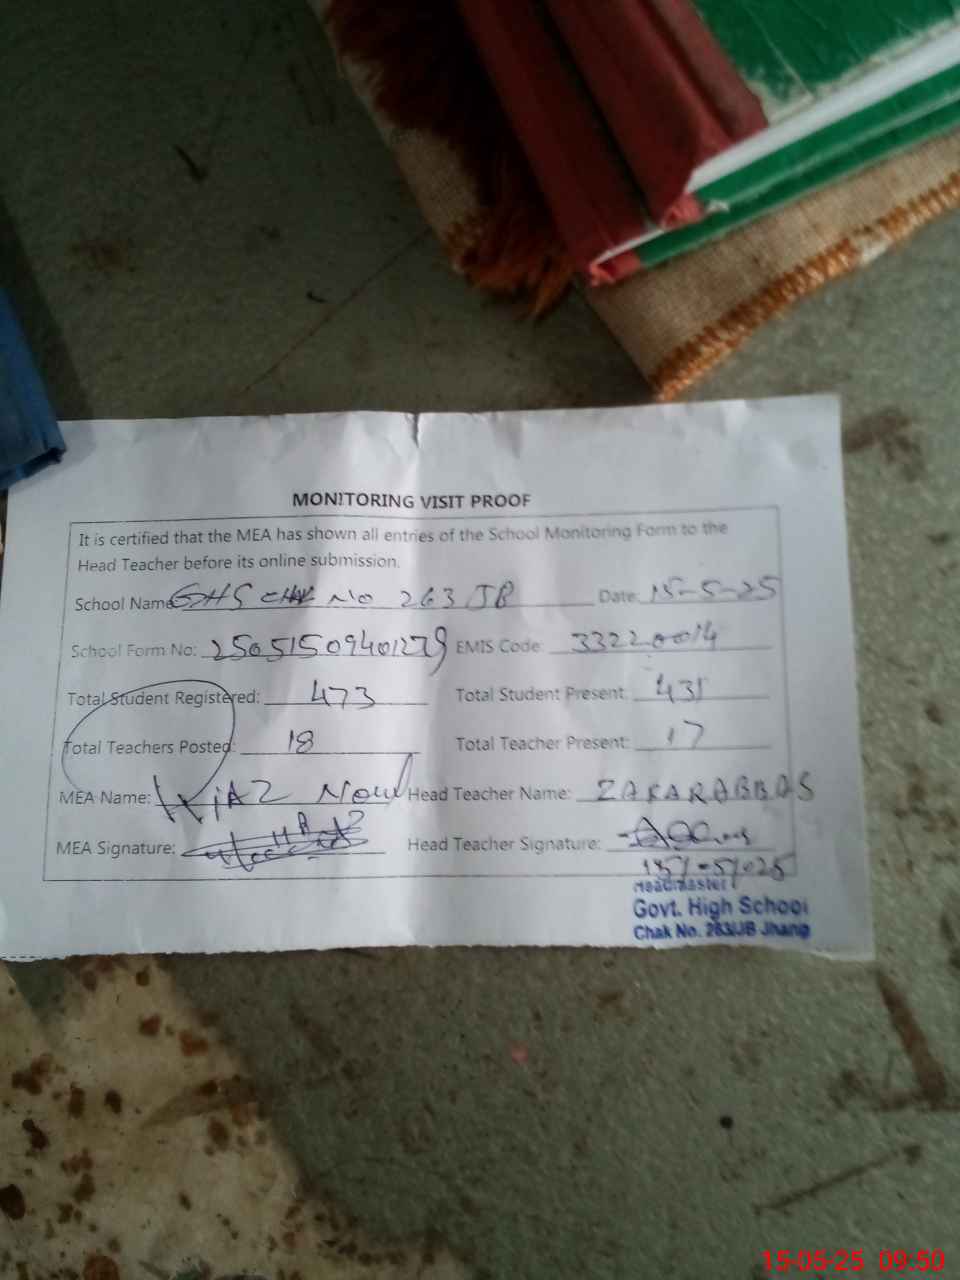 MONITORING VISIT PROOF
It is certified that the MEA has shown all entries of the School Monitoring Form to the
Head Teacher before its online submission.
School Name GHS CHAK NO 263 JB Date: 15-5-25
School Form No: 25051509401279 EMIS Code: 33220014
Total Student Registered: 473 Total Student Present: 431
Total Teachers Posted: 18 Total Teacher Present: 17
MEA Name: Head Teacher Name: ZAKAR ABBAS
MEA Signature: Head Teacher Signature:
Headmaster
Govt. High School
Chak No. 263/JB Jhang
15-05-25 09:50